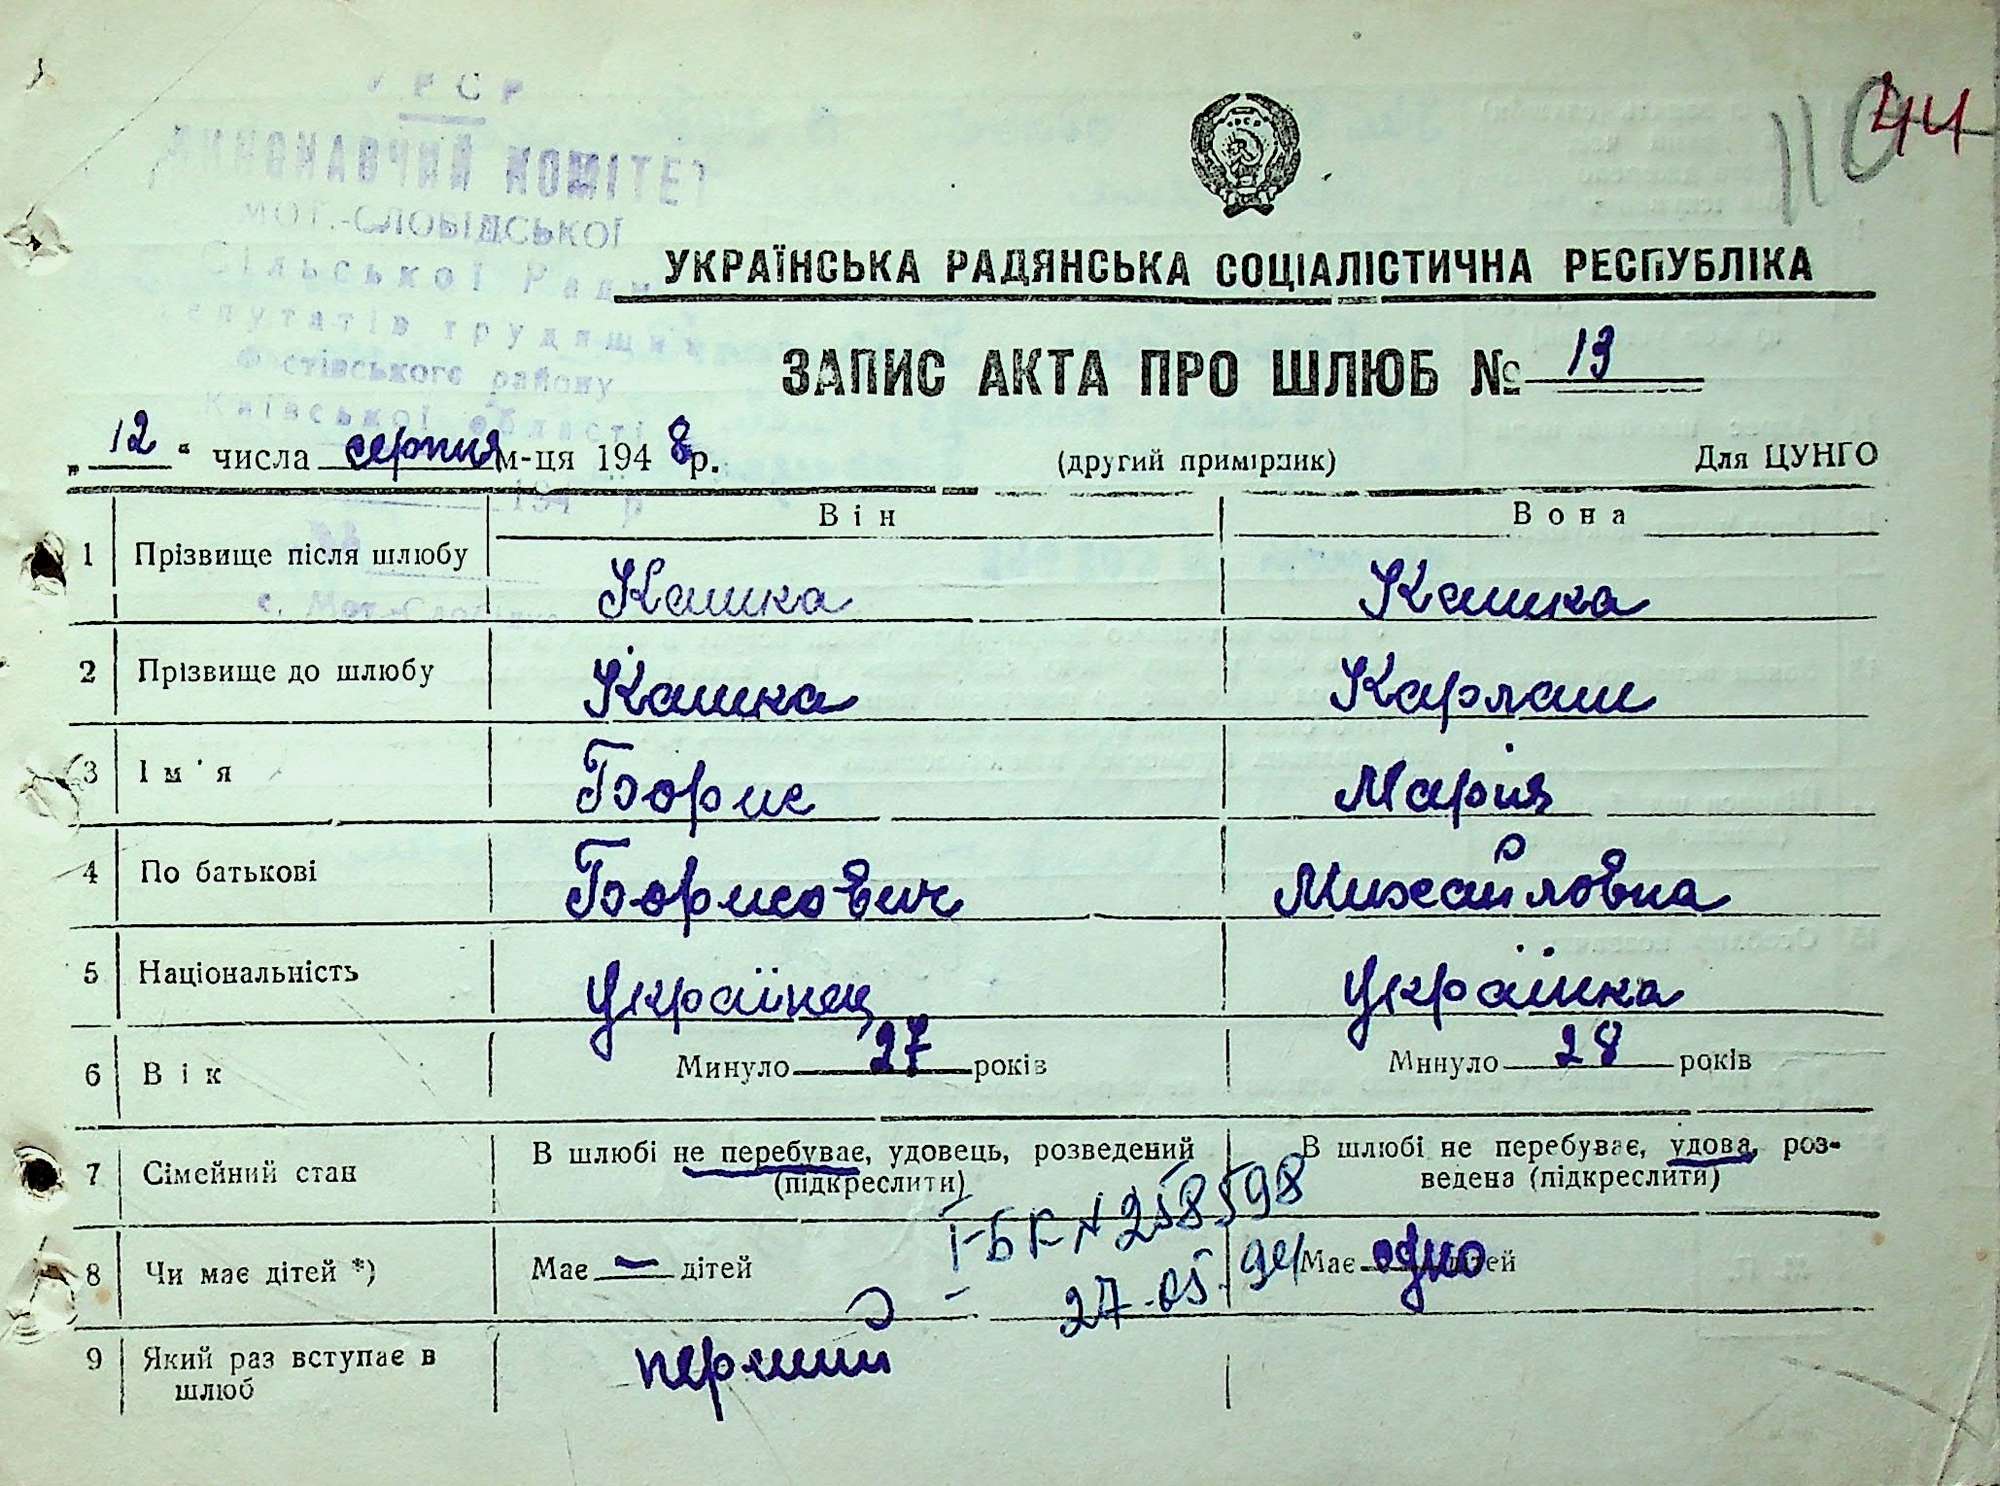 УРСР
ВИКОНАВЧИЙ КОМІТЕТ
МОТ.-СЛОБІДСЬКОЇ
Сільської Ради
депутатів трудящих
Фастівського району
Київської області
194 р
с. Мот.-Слобідка
110 44
УКРАЇНСЬКА РАДЯНСЬКА СОЦІАЛІСТИЧНА РЕСПУБЛІКА
ЗАПИС АКТА ПРО ШЛЮБ № 13
„12“ числа серпня м-ця 1948 р. (другий примірник) Для ЦУНГО
Він Вона
1 Прізвище після шлюбу Кашка Кашка
2 Прізвище до шлюбу Кашка Карлаш
3 Ім'я Борис Марія
4 По батькові Борисович Михайловна
5 Національність Українец Українка
6 Вік Минуло 27 років Минуло 28 років
7 Сімейний стан В шлюбі не перебуває, удовець, розведений (підкреслити) В шлюбі не перебуває, удова, роз-
ведена (підкреслити)
І-БК № 258598
8 Чи має дітей *) Має — дітей Має одно дітей
27.05.94
9 Який раз вступає в перший
шлюб